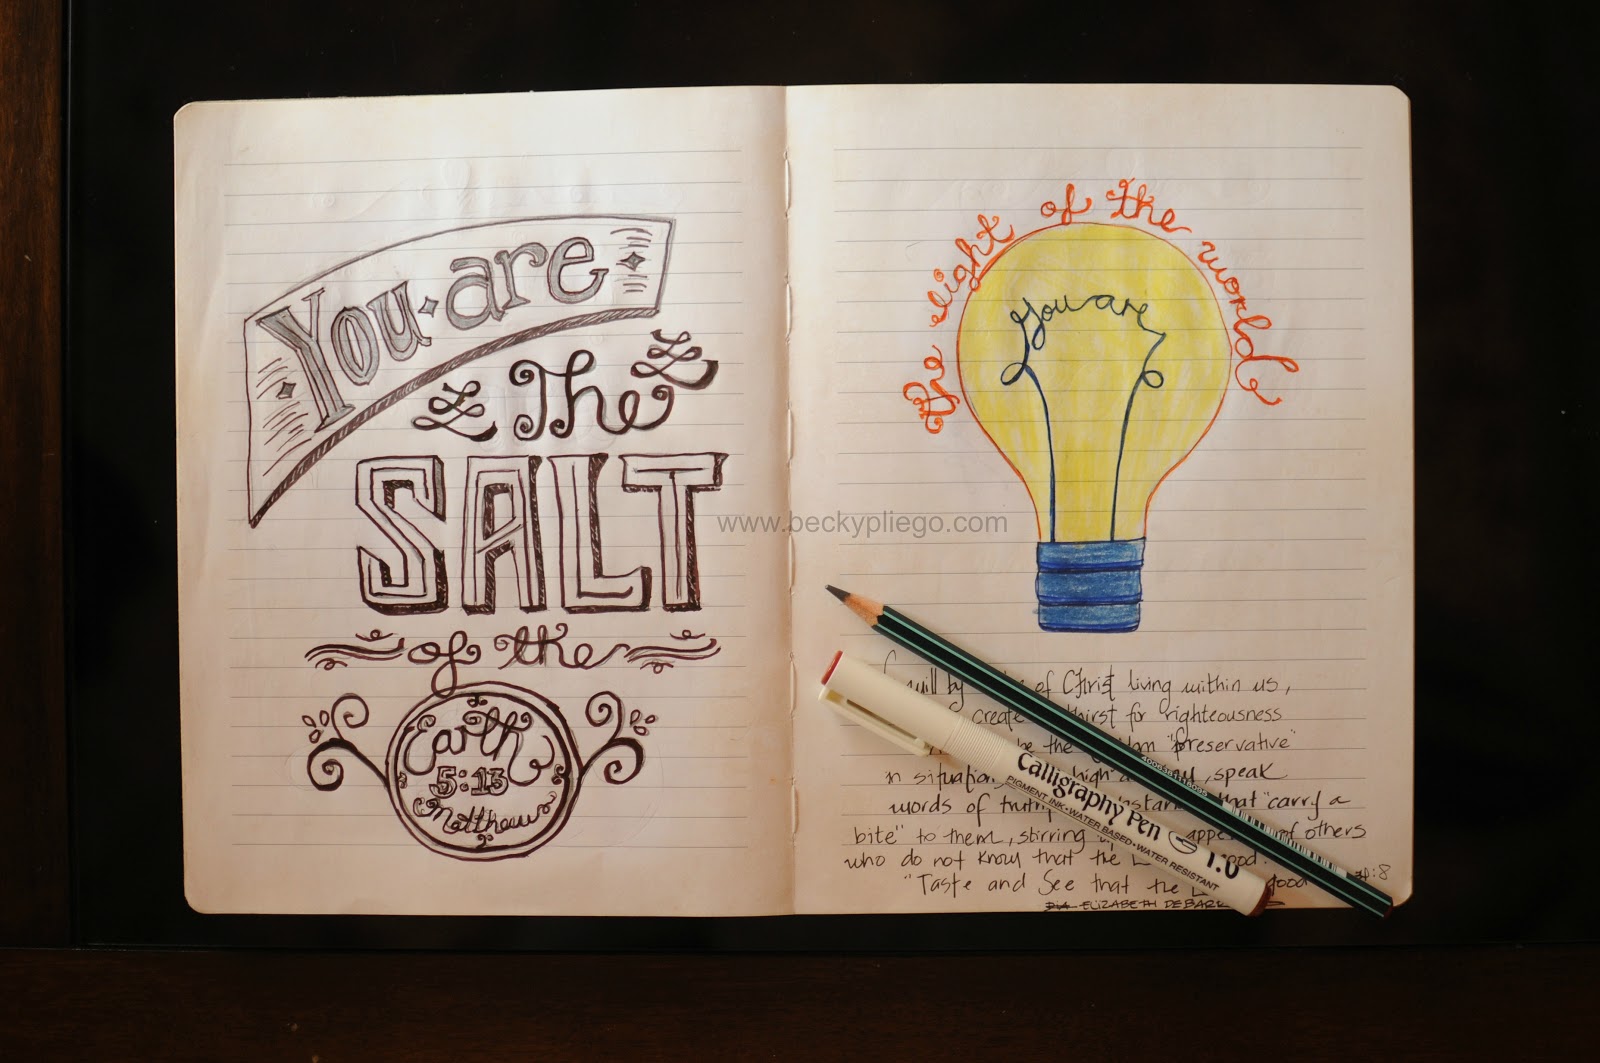 You are
The
SALT
of the
Earth
5:13
Matthew
www.beckypliego.com
the light of the world
you are
will by of Christ living within us,
create thirst for righteousness
be the "preservative"
in situation high , speak
words of truth that "carry a
bite" to them, stirring appe of others
who do not know that the
"Taste and See that the good :8
ELIZABETH DEBAR
Calligraphy Pen 1.0
PIGMENT INK • WATER BASED • WATER RESISTANT